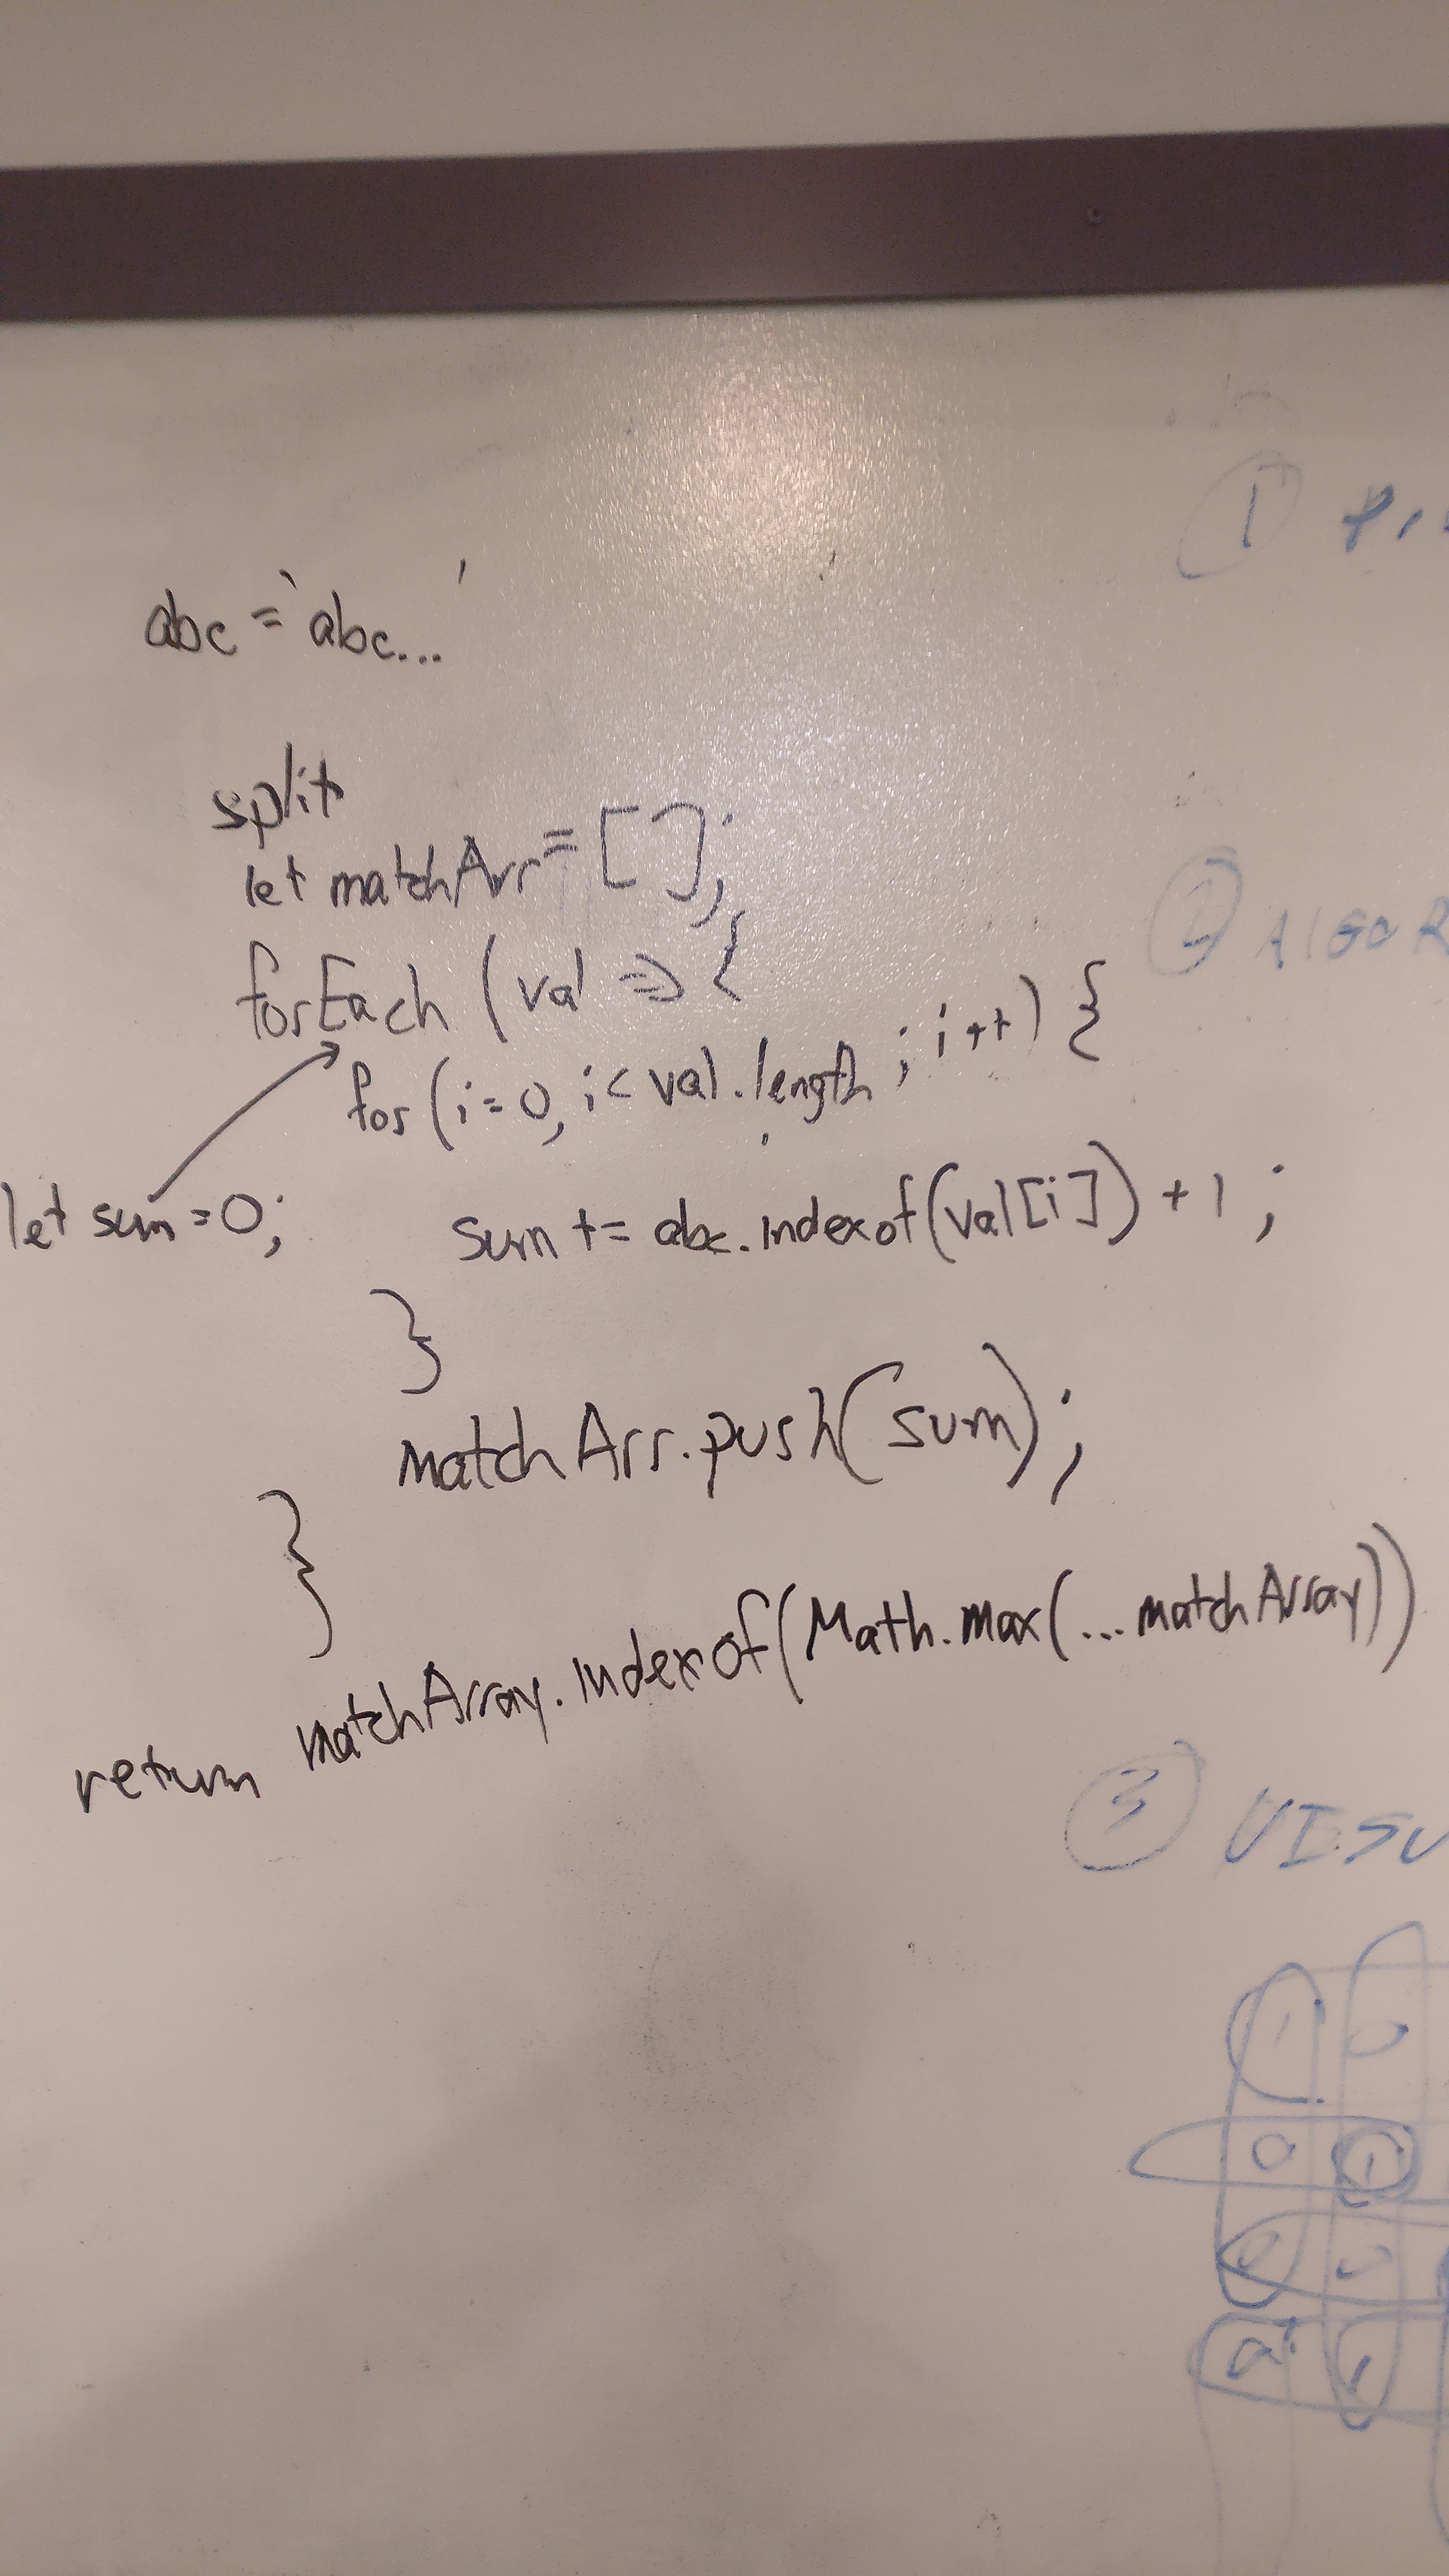 abc = 'abc...'
split
let matchArr = [];
forEach (val => {
for (i=0, i< val.length ; i++) {
let sum = 0;
sum += abc.indexof(val[i]) + 1 ;
}
matchArr.push(sum);
}
return matchArray.indexof(Math.max(...matchArray))
1
2 ALGOR
3 VISU
1 0
0 1
0 0
1